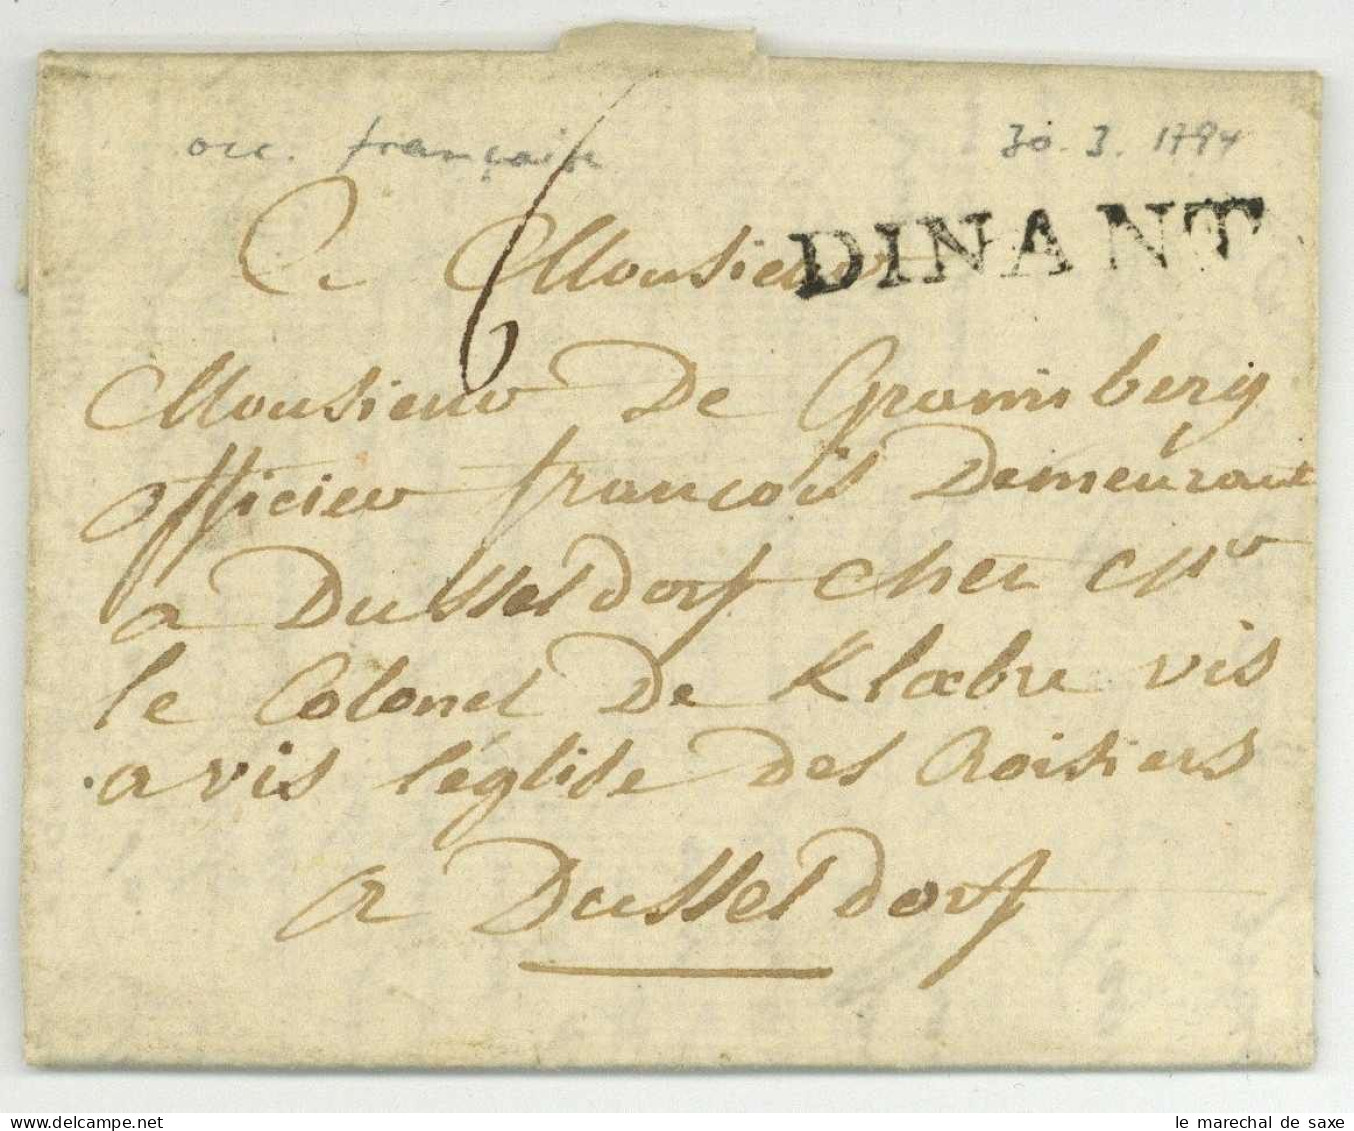 occ. française 30. 3. 1794
DINANT
6
A Monsieur
Monsieur De Gromisberg
officier francois Demeurant
a Dusseldorf chez Mr
le Colonel De Klœbre vis
avis l'église des Croisiers
a Dusseldorf
www.delcampe.net
le marechal de saxe